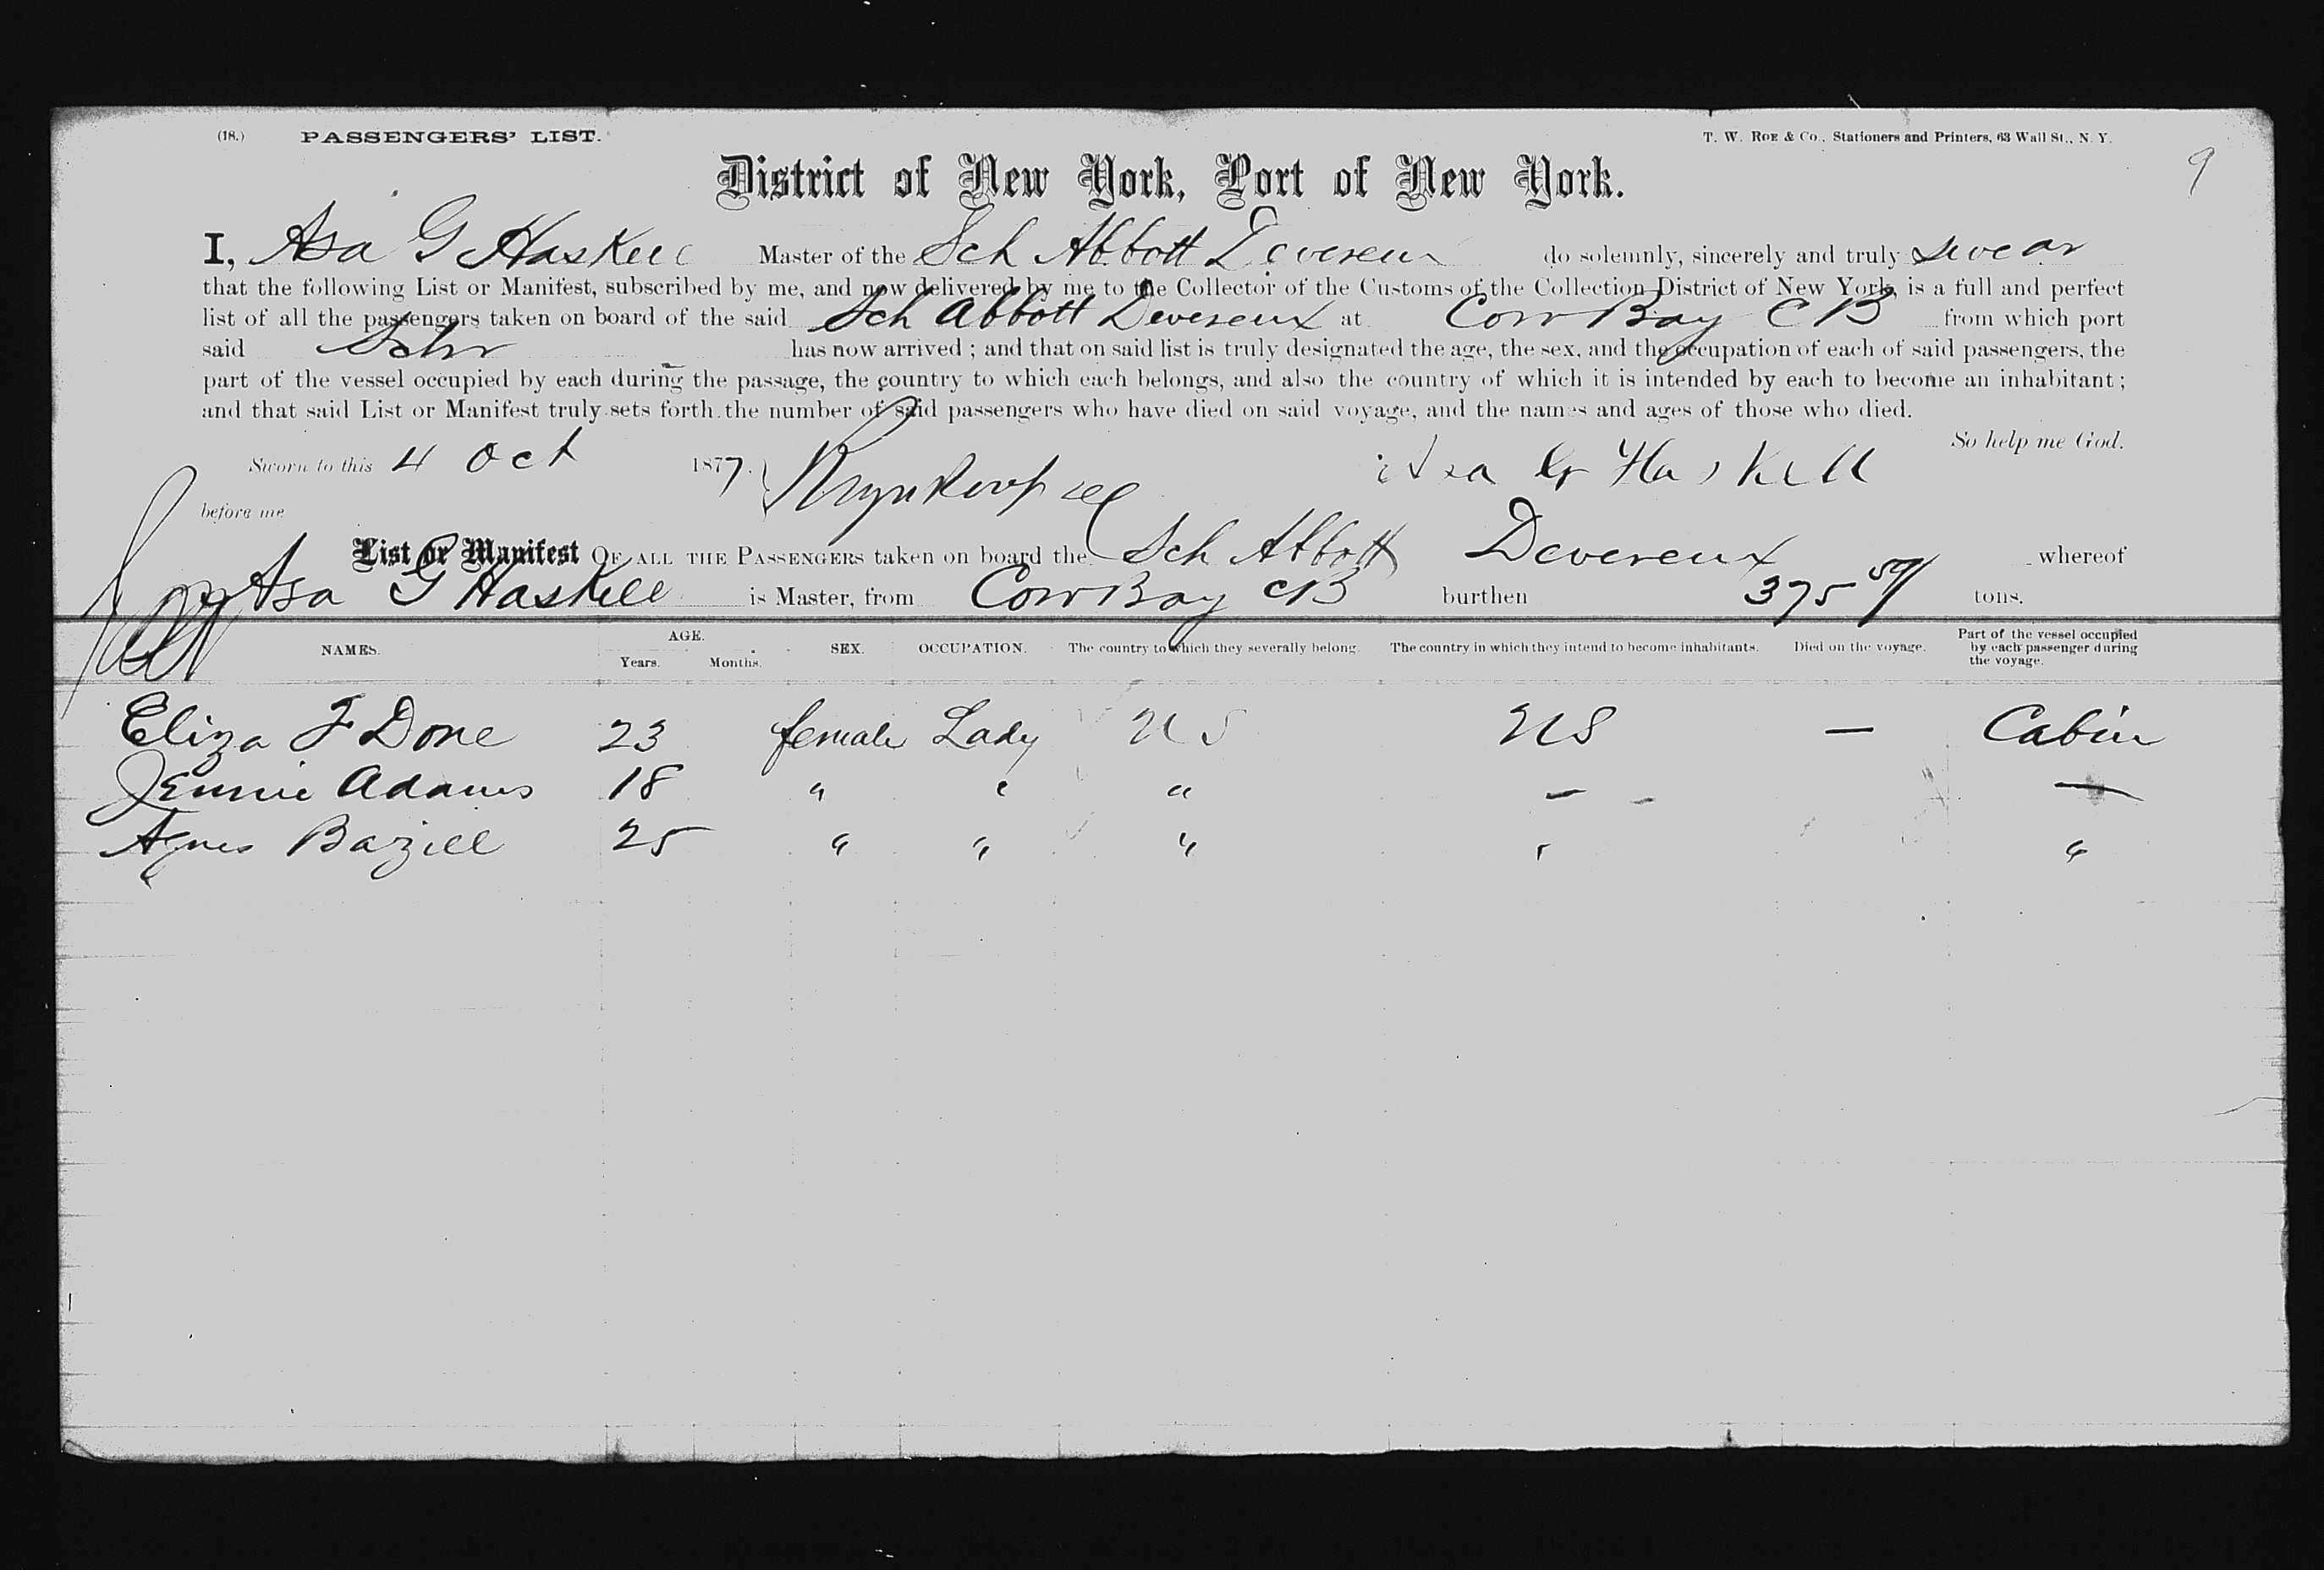 (18.) PASSENGERS' LIST. T. W. ROE & Co., Stationers and Printers, 63 Wall St., N. Y.
9
District of New York, Port of New York.
I, Asa G Haskell Master of the Sch Abbott Devereux do solemnly, sincerely and truly swear
that the following List or Manifest, subscribed by me, and now delivered by me to the Collector of the Customs of the Collection District of New York, is a full and perfect
list of all the passengers taken on board of the said Sch Abbott Devereux at Cow Bay CB from which port
said Schr has now arrived ; and that on said list is truly designated the age, the sex, and the occupation of each of said passengers, the
part of the vessel occupied by each during the passage, the country to which each belongs, and also the country of which it is intended by each to become an inhabitant ;
and that said List or Manifest truly sets forth the number of said passengers who have died on said voyage, and the names and ages of those who died.
So help me God.
Sworn to this 4 Oct 1877. Asa G Haskell
before me
List or Manifest OF ALL THE PASSENGERS taken on board the Sch Abbott Devereux whereof
Asa G Haskell is Master, from Cow Bay CB burthen 375 59/ tons.
NAMES. AGE. Years. Months. SEX. OCCUPATION. The country to which they severally belong. The country in which they intend to become inhabitants. Died on the voyage. Part of the vessel occupied by each passenger during the voyage.
Eliza F Done 23 female Lady US US — Cabin
Jennie Adams 18 " " " — —
Agnes Bazill 25 " " " " "